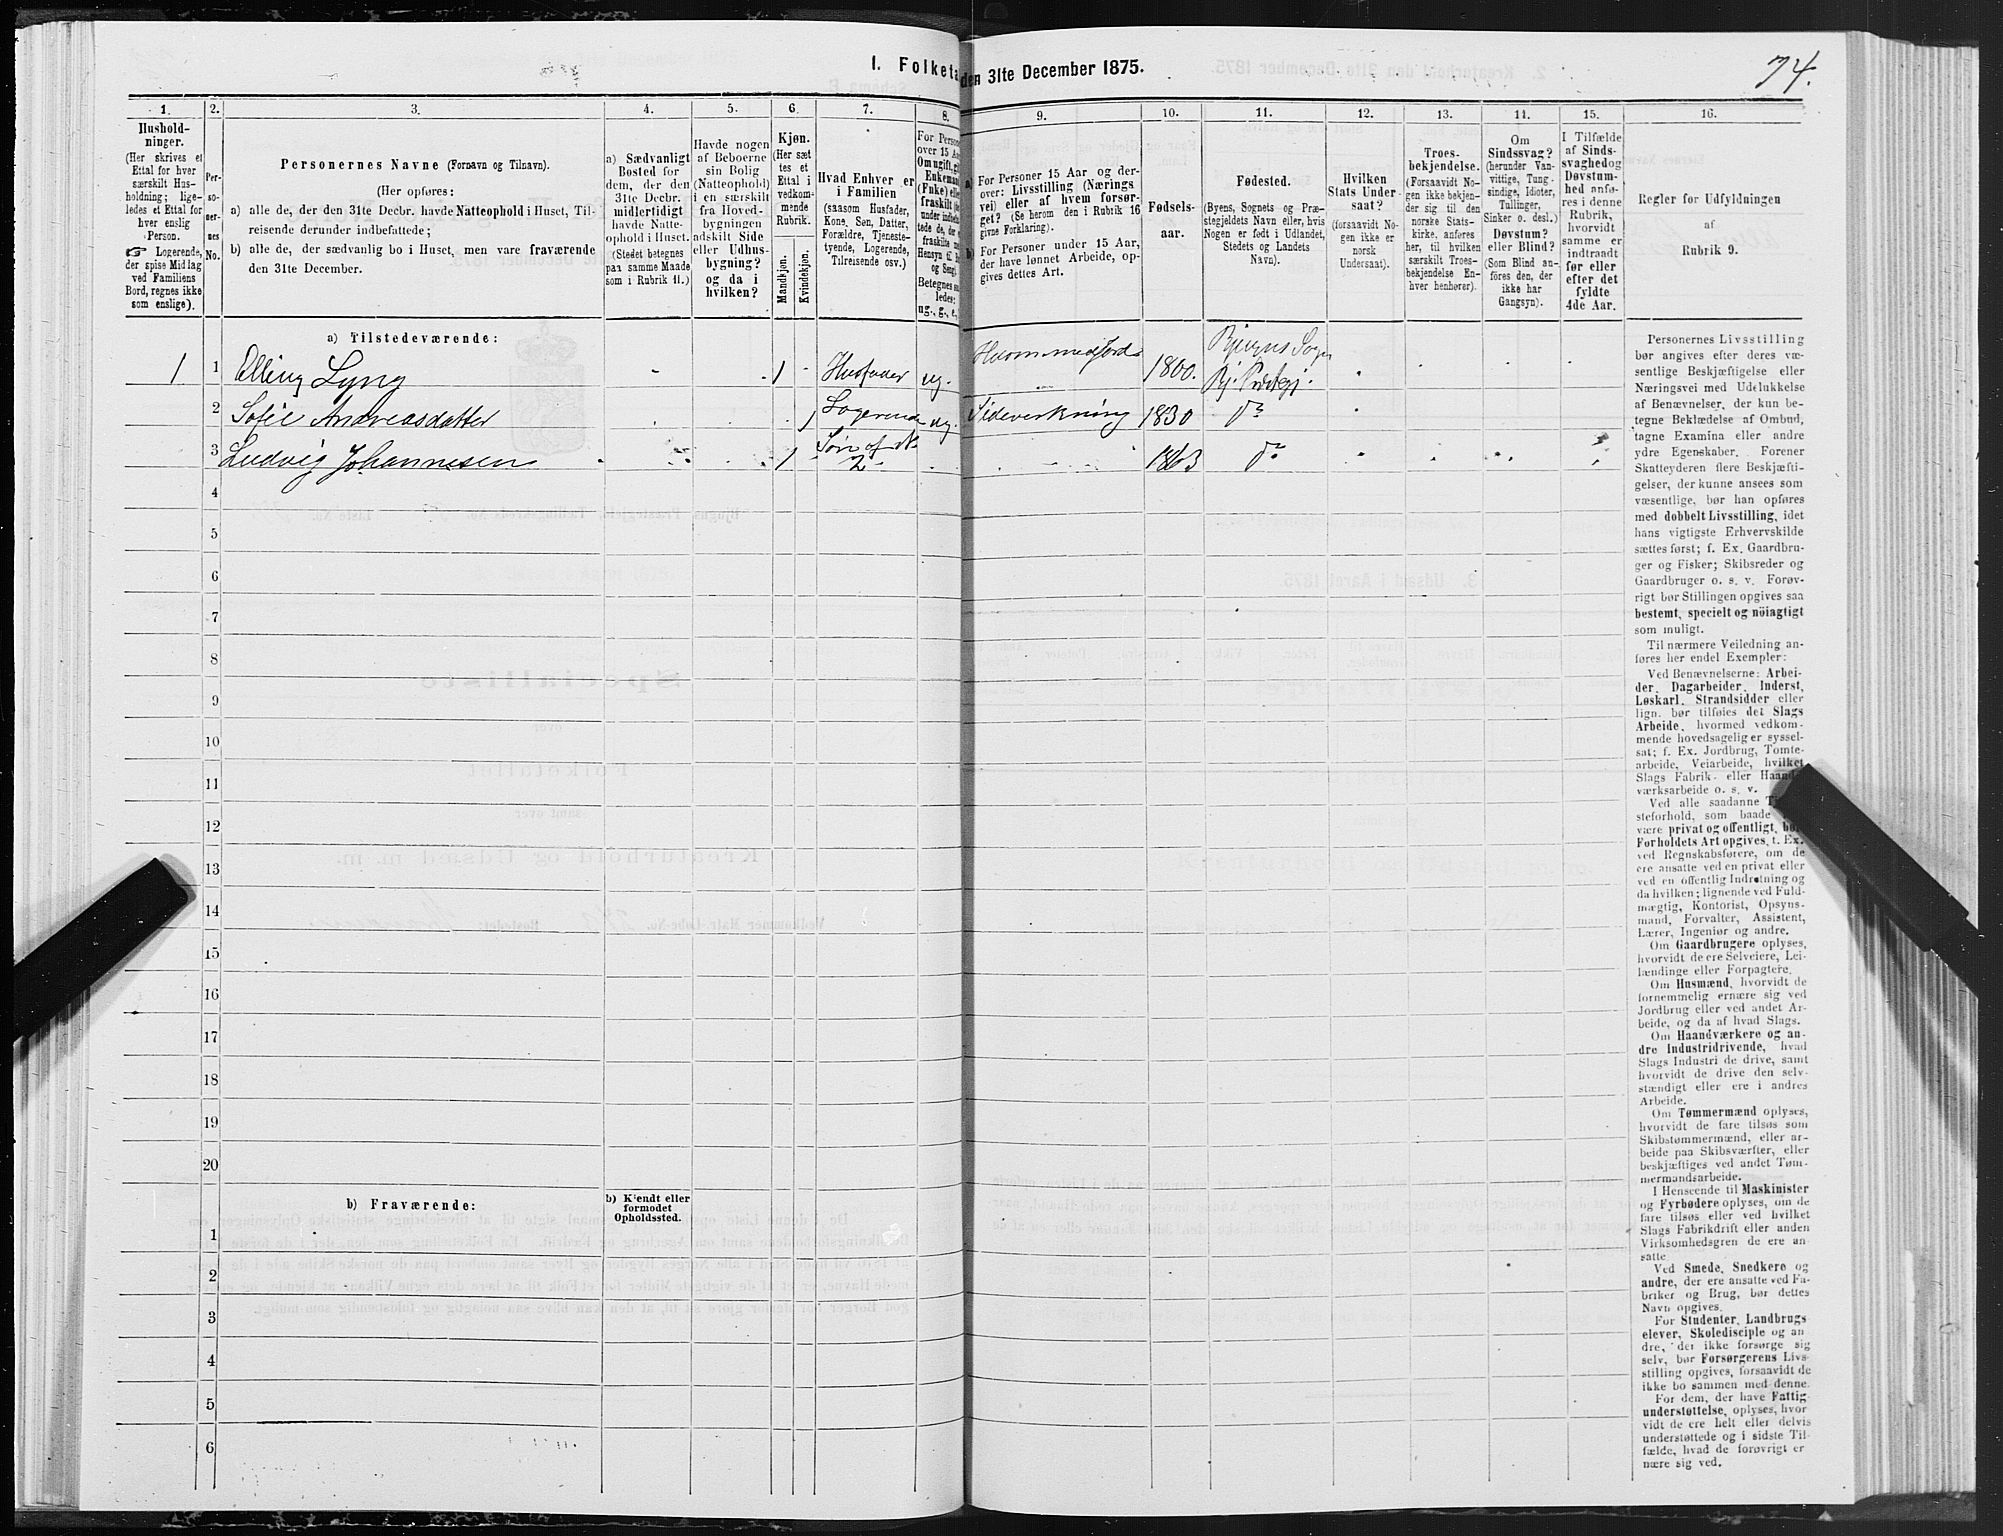 74.
I. Folketa
den 31te December 1875.
1.
2.
3.
4.
5.
6.
7.
8.
9.
10.
11.
12.
13.
14.
15.
16.
Hushold-
ninger.
(Her skrives et
Ettal for hver
særskilt Hus-
holdning; lige-
ledes et Ettal for
hver enslig
Person.
Logerende,
der spise Middag
ved Familiens
Bord, regnes ikke
som enslige).
Per-
so-
ner-
nes
No.
Personernes Navne (Fornavn og Tilnavn).
(Her opføres:
a) alle de, der den 31te Decbr. havde Natteophold i Huset, Til-
reisende derunder indbefattede;
b) alle de, der sædvanlig bo i Huset, men vare fraværende
den 31te December.
a) Sædvanligt
Bosted for
dem, der den
31te Decbr.
midlertidigt
havde Natte-
ophold i Huset.
(Stedet betegnes
paa samme Maade
som i Rubrik 11.)
Havde nogen
af Beboerne
sin Bolig
(Natteophold)
i en særskilt
fra Hoved-
bygningen
adskilt Side
eller Udhus-
bygning?
og da i
hvilken?
Kjøn.
(Her sæt
tes et
Ettal i
vedkom-
mende
Rubrik.
Mandkjøn.
Kvindekjøn.
Hvad Enhver er
i Familien
(saasom Husfader,
Kone, Søn, Datter,
Forældre, Tjeneste-
tyende, Logerende,
Tilreisende osv.)
For Perso
over 15 Aa
Om ugift, g
Enkemand
(Fuke) elle
fraskilt
ng., g., e,
a)
For Personer 15 Aar og der-
over: Livsstilling (Nærings
vei) eller af hvem forsør-
get? (Se herom den i Rubrik 16
givne Forklaring).
b)
For Personer under 15 Aar,
der have lønnet Arbeide, op-
gives dettes Art.
Fødsels-
aar.
Fødested.
(Byens, Sognets og Præ-
stegjeldets Navn eller, hvis
Nogen er født i Udlandet,
Stedets og Landets
Navn).
Hvilken
Stats Under-
saat?
(forsaavidt No-
gen ikke er
norsk
Undersaat).
Troes-
bekjendelse.
(Forsaavidt No-
gen ikke bekjen-
der sig til den
norske Stats-
kirke, anføres
her, til hvilken
særskilt Troes-
bekjendelse En-
hver henhører).
Om
Sindssvag?
(herunder Van-
vittige, Tung-
sindige, Idioter,
Tullinger,
Sinker o. desl.)
Døvstum?
eller Blind?
(Som Blind an-
føres den, der
ikke har
Gangsyn).
I Tilfælde
af Sinds-
svaghed og
Døvstum-
hed anfø-
res i denne
Rubrik,
hvorvidt
samme er
indtraadt
før eller
efter det
fyldte
4de Aar.
Regler for Udfyldningen
af
Rubrik 9.
a) Tilstedeværende:
1 1 Elling Lyng 1 Husfader ug. 1800.
Bj. Præstegj.
2 Sofie Andreasdatter 1 Logerende ug. 1830 do
3 Ludvig Johannesen 1 Søn af No 2 1863 do
4
5
6
7
8
9
10
11
12
13
14
15
16
17
18
19
20
b) Fraværende:
b) Kjendt eller
formodet
Opholdssted.
1
2
3
4
5
6
Personernes Livsstilling
bør angives efter deres væ-
sentlige Beskjæftigelse eller
Næringsvei med Udelukkelse
af Benævnelser, der kun be-
tegne Bekladelse af Ombud,
tagne Examina eller andre
ydre Egenskaber. Forener
Skatteyderen flere Beskjæfti-
gelser, der kunne ansees som
væsentlige, bør han opføres
med dobbelt Livsstilling, idet
hans vigtigste Erhvervskilde
sættes først; f. Ex. Gaardbru-
ger og Fisker; Skibsreder og
Gaardbruger o. s. v. Forøv-
rigt bør Stillingen opgives saa
bestemt, specielt og nøiagtigt
som muligt.
Til nærmere Veiledning an-
føres her endel Exempler:
Ved Benævnelserne: Arbei-
der, Dagarbeider, Inderst,
Løskarl, Strandsidder eller
lign. bør tilføies det Slags
Arbeide, hvormed vedkom-
mende hovedsagelig er syssel-
sat; f. Ex. Jordbrug, Tomte-
arbeide, Veiarbeide, hvilket
Slags Fabrik- eller Haand-
værksarbeide o. s. v.
Ved alle saadanne
steforhold, som baade
være privat og offentligt, bør
Forholdets Art opgives, t. Ex.
ved Regnskabsførere, om de
ere ansatte ved en privat eller
ved en offentlig Indretning og
da hvilken; lignende ved Fuld-
mægtig, Kontorist, Opsyns-
mand, Forvalter, Assistent,
Lærer, Ingeniør og andre.
Om Gaardbrugere oplyses,
hvorvidt de ere Selveiere, Lei-
lændinge eller Forpagtere.
Om Husmænd, hvorvidt de
fornemmelig ernære sig ved
Jordbrug eller ved andet Ar-
beide, og da af hvad Slags.
Om Haandværkere og an-
dre Industridrivende, hvad
Slags Industri de drive, samt
hvorvidt de drive den selv-
stændigt eller ere i andres
Arbeide.
Om Tømmermænd oplyses,
hvorvidt de fare tilsøs som
Skibstømmermænd, eller ar-
beide paa Skibsværfter, eller
beskjæftiges ved andet Tøm-
mermandsarbeide.
I Henseende til Maskinister
og Fyrbødere oplyses, om de
fare tilsøs eller ved hvilket
Slags Fabrikdrift eller anden
Virksomhedsgren de ere an-
satte
Ved Smede, Snedkere og
andre, der ere ansatte ved Fa-
briker og Brug, bør dettes
Navn opgives.
For Studenter, Landbrugs
elever, Skoledisciple og an
dre, der ikke forsørge sig
selv, bør Forsørgerens Livs-
stilling opgives, forsaavidt de
ikke bo sammen med denne.
For dem, der have Fattig
understøttelse, oplyses, hvor
vidt de ere helt eller delvis
understøttede og i sidste Til-
fælde, hvad de forøvrigt er
nære sig ved.